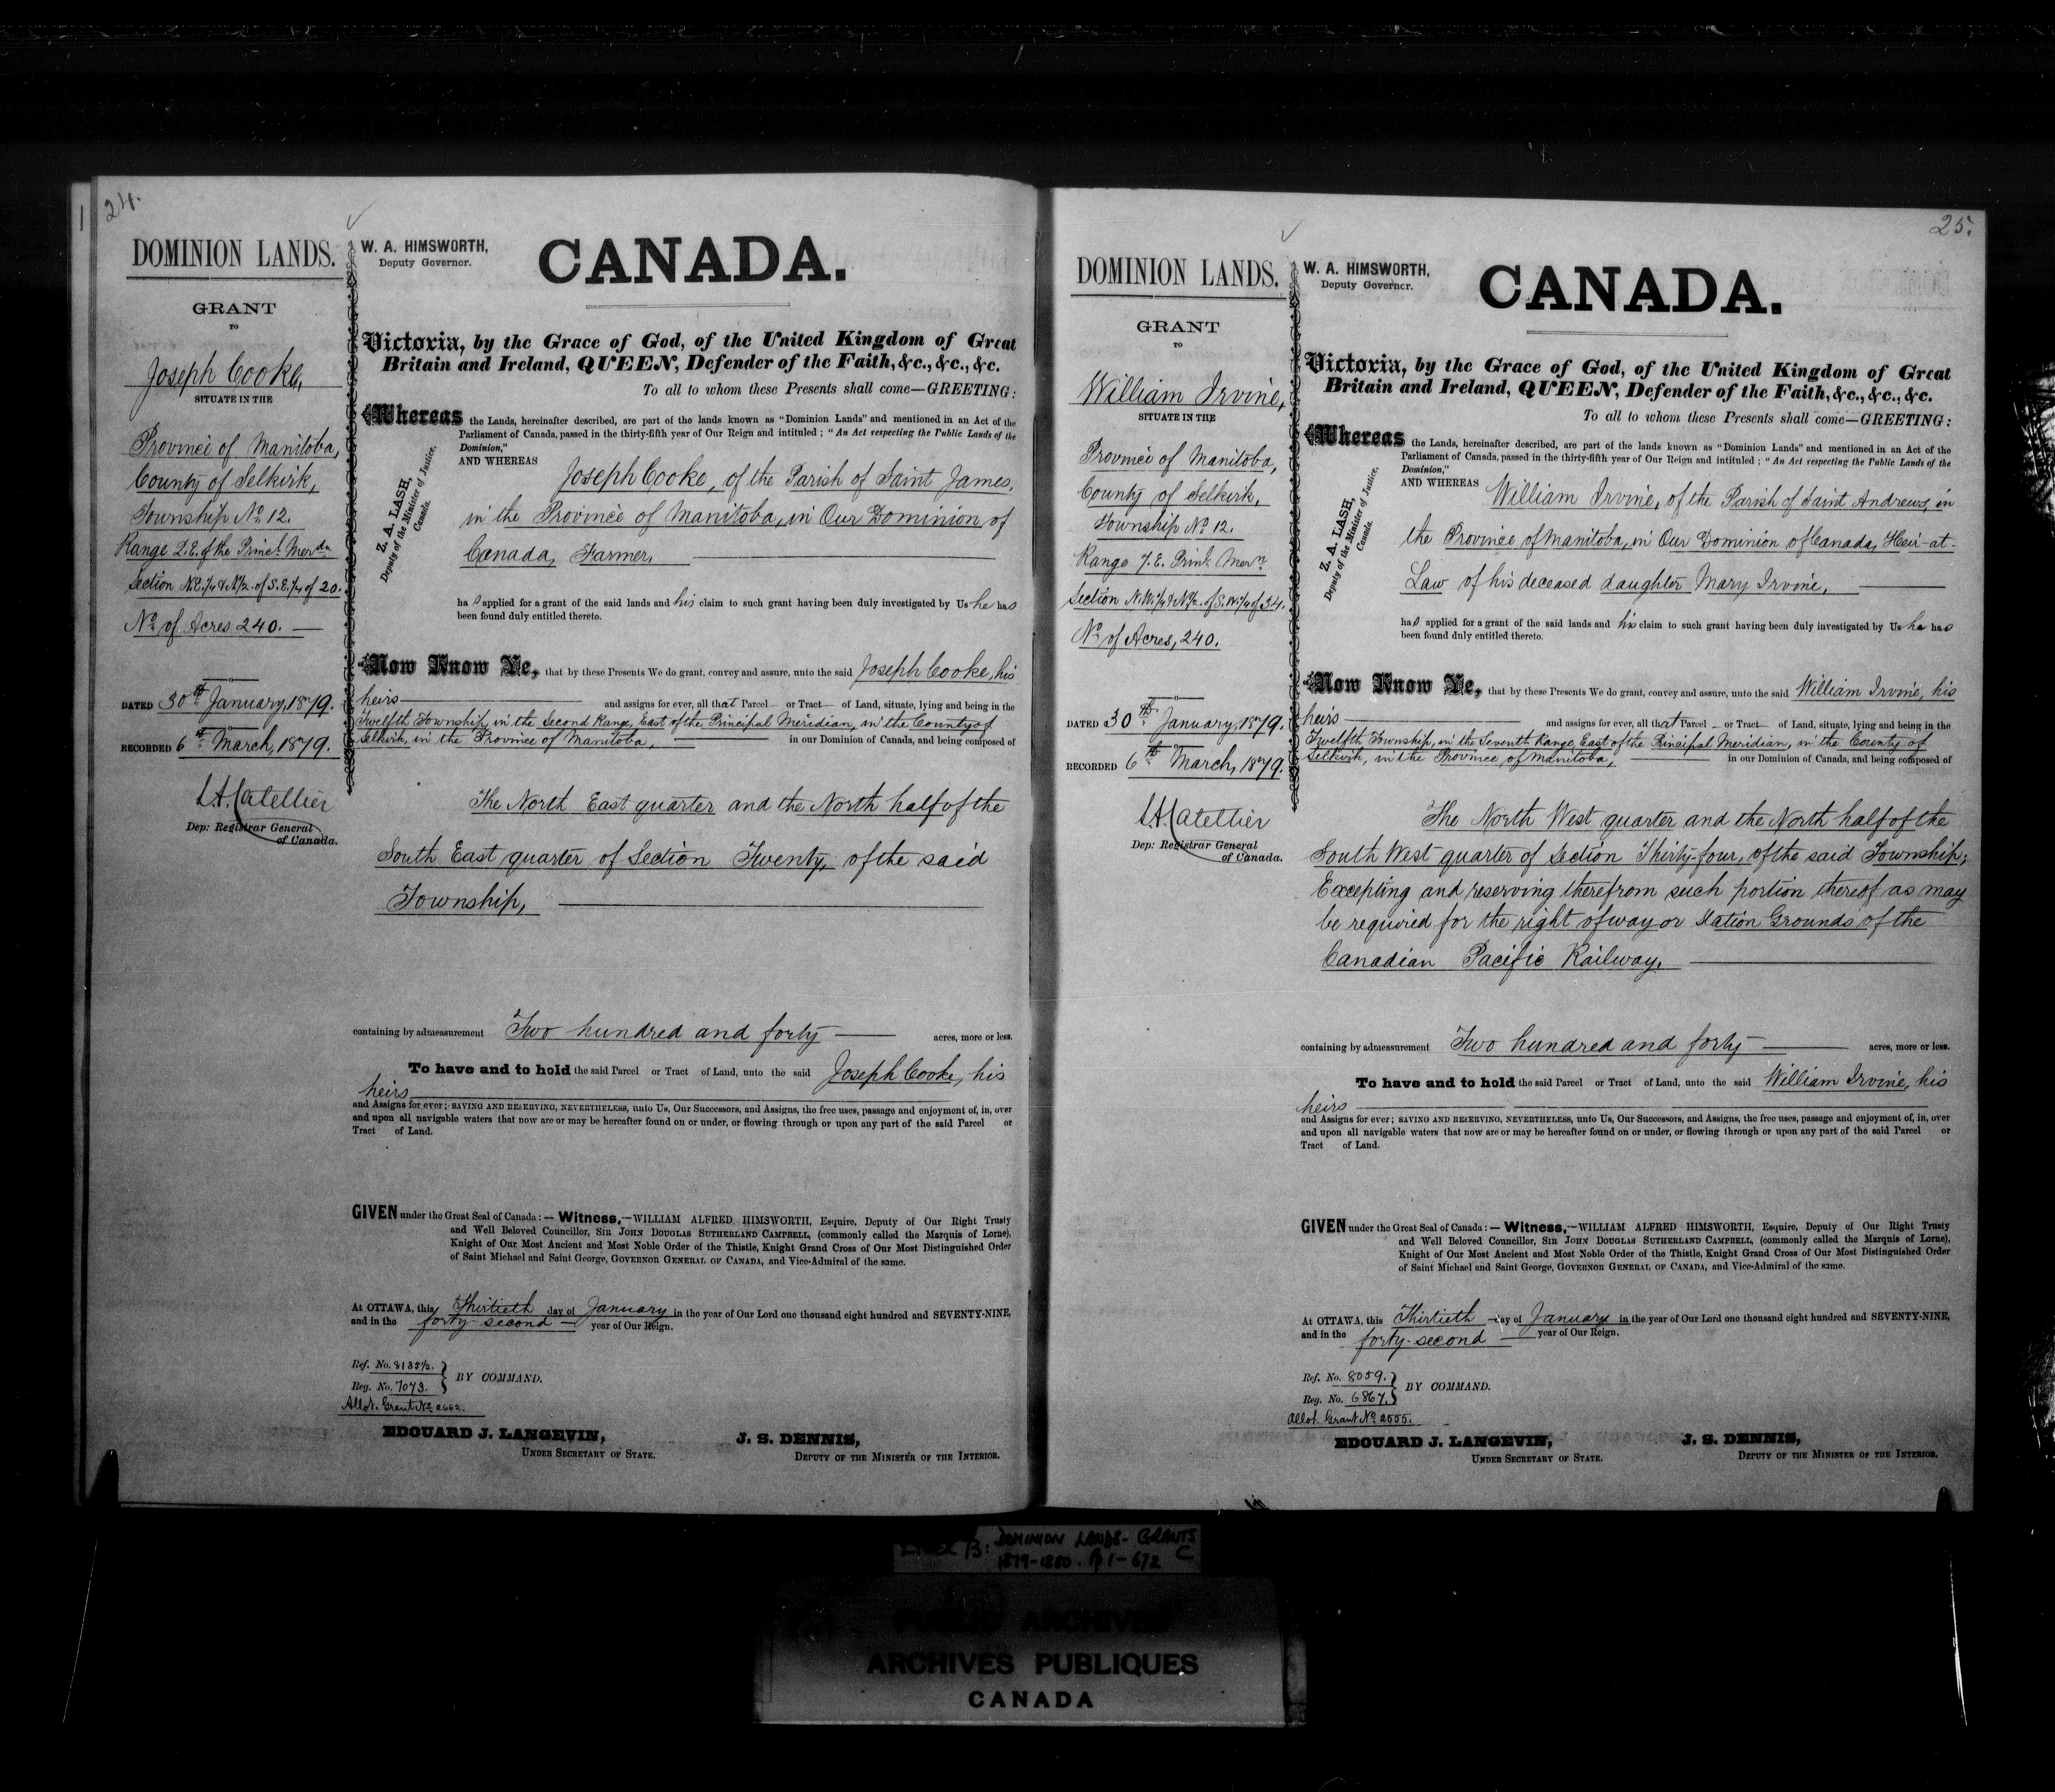 24.
DOMINION LANDS.
GRANT
TO
Joseph Cooke,
SITUATE IN THE
Province of Manitoba,
County of Selkirk,
Township No. 12.
Range 2.E. of the Princl. Merdn
Section N.E.1/4 & N.1/2. of S.E.1/4 of 20.
No. of Acres 240.
DATED 30th January, 1879.
RECORDED 6th March, 1879.
L.A. Catellier
Dep: Registrar General
of Canada.
W. A. HIMSWORTH,
Deputy Governor.
CANADA.
Victoria, by the Grace of God, of the United Kingdom of Great
Britain and Ireland, QUEEN, Defender of the Faith, &c., &c., &c.
To all to whom these Presents shall come—GREETING:
Whereas the Lands, hereinafter described, are part of the lands known as "Dominion Lands" and mentioned in an Act of the
Parliament of Canada, passed in the thirty-fifth year of Our Reign and intituled; "An Act respecting the Public Lands of the
Dominion,"
Z. A. LASH,
Deputy of the Minister of Justice,
Canada.
AND WHEREAS Joseph Cooke, of the Parish of Saint James,
in the Province of Manitoba, in Our Dominion of
Canada, Farmer,
has applied for a grant of the said lands and his claim to such grant having been duly investigated by Us he has
been found duly entitled thereto.
Now Know Ye, that by these Presents We do grant, convey and assure, unto the said Joseph Cooke, his
heirs and assigns for ever, all that Parcel or Tract of Land, situate, lying and being in the
Twelfth Township, in the Second Range, East of the Principal Meridian, in the County of
Selkirk, in the Province of Manitoba, in our Dominion of Canada, and being composed of
The North East quarter and the North half of the
South East quarter of Section Twenty, of the said
Township,
containing by admeasurement Two hundred and forty acres, more or less.
To have and to hold the said Parcel or Tract of Land, unto the said Joseph Cooke, his
heirs
and Assigns for ever; SAVING AND RESERVING, NEVERTHELESS, unto Us, Our Successors, and Assigns, the free uses, passage and enjoyment of, in, over
and upon all navigable waters that now are or may be hereafter found on or under, or flowing through or upon any part of the said Parcel or
Tract of Land.
GIVEN under the Great Seal of Canada:—Witness,—WILLIAM ALFRED HIMSWORTH, Esquire, Deputy of Our Right Trusty
and Well Beloved Councillor, SIR JOHN DOUGLAS SUTHERLAND CAMPBELL, (commonly called the Marquis of Lorne),
Knight of Our Most Ancient and Most Noble Order of the Thistle, Knight Grand Cross of Our Most Distinguished Order
of Saint Michael and Saint George, GOVERNOR GENERAL OF CANADA, and Vice-Admiral of the same.
At OTTAWA, this Thirtieth day of January in the year of Our Lord one thousand eight hundred and SEVENTY-NINE,
and in the forty-second year of Our Reign.
Ref. No. 8135 1/2.
Reg. No. 7073.
BY COMMAND.
Allot. Grant No. 2662.
EDOUARD J. LANGEVIN,
UNDER SECRETARY OF STATE.
J. S. DENNIS,
DEPUTY OF THE MINISTER OF THE INTERIOR.
25.
DOMINION LANDS.
GRANT
TO
William Irvine,
SITUATE IN THE
Province of Manitoba,
County of Selkirk,
Township No. 12.
Range 7.E. Prinl. Mern
Section N.W.1/4 & N.1/2. of S.W.1/4 of 34.
No. of Acres, 240.
DATED 30th January, 1879.
RECORDED 6th March, 1879.
L.A. Catellier
Dep: Registrar General
of Canada.
W. A. HIMSWORTH,
Deputy Governor.
CANADA.
Victoria, by the Grace of God, of the United Kingdom of Great
Britain and Ireland, QUEEN, Defender of the Faith, &c., &c., &c.
To all to whom these Presents shall come—GREETING:
Whereas the Lands, hereinafter described, are part of the lands known as "Dominion Lands" and mentioned in an Act of the
Parliament of Canada, passed in the thirty-fifth year of Our Reign and intituled; "An Act respecting the Public Lands of the
Dominion,"
Z. A. LASH,
Deputy of the Minister of Justice,
Canada.
AND WHEREAS William Irvine, of the Parish of Saint Andrews, in
the Province of Manitoba, in Our Dominion of Canada, Heir-at-
Law of his deceased daughter Mary Irvine,
has applied for a grant of the said lands and his claim to such grant having been duly investigated by Us he has
been found duly entitled thereto.
Now Know Ye, that by these Presents We do grant, convey and assure, unto the said William Irvine, his
heirs and assigns for ever, all that Parcel or Tract of Land, situate, lying and being in the
Twelfth Township, in the Seventh Range, East of the Principal Meridian, in the County of
Selkirk, in the Province of Manitoba, in our Dominion of Canada, and being composed of
The North West quarter and the North half of the
South West quarter of Section Thirty-four, of the said Township;
Excepting and reserving therefrom such portion thereof as may
be required for the right of way or Station Grounds of the
Canadian Pacific Railway.
containing by admeasurement Two hundred and forty acres, more or less.
To have and to hold the said Parcel or Tract of Land, unto the said William Irvine, his
heirs
and Assigns for ever; SAVING AND RESERVING, NEVERTHELESS, unto Us, Our Successors, and Assigns, the free uses, passage and enjoyment of, in, over
and upon all navigable waters that now are or may be hereafter found on or under, or flowing through or upon any part of the said Parcel or
Tract of Land.
GIVEN under the Great Seal of Canada:—Witness,—WILLIAM ALFRED HIMSWORTH, Esquire, Deputy of Our Right Trusty
and Well Beloved Councillor, SIR JOHN DOUGLAS SUTHERLAND CAMPBELL, (commonly called the Marquis of Lorne),
Knight of Our Most Ancient and Most Noble Order of the Thistle, Knight Grand Cross of Our Most Distinguished Order
of Saint Michael and Saint George, GOVERNOR GENERAL OF CANADA, and Vice-Admiral of the same.
At OTTAWA, this Thirtieth day of January in the year of Our Lord one thousand eight hundred and SEVENTY-NINE,
and in the forty-second year of Our Reign.
Ref. No. 8059.
Reg. No. 6867.
BY COMMAND.
Allot. Grant No. 2555.
EDOUARD J. LANGEVIN,
UNDER SECRETARY OF STATE.
J. S. DENNIS,
DEPUTY OF THE MINISTER OF THE INTERIOR.
B: DOMINION LANDS - GRANTS
1879-1880. Pp 1-672 C
PUBLIC ARCHIVES
ARCHIVES PUBLIQUES
CANADA